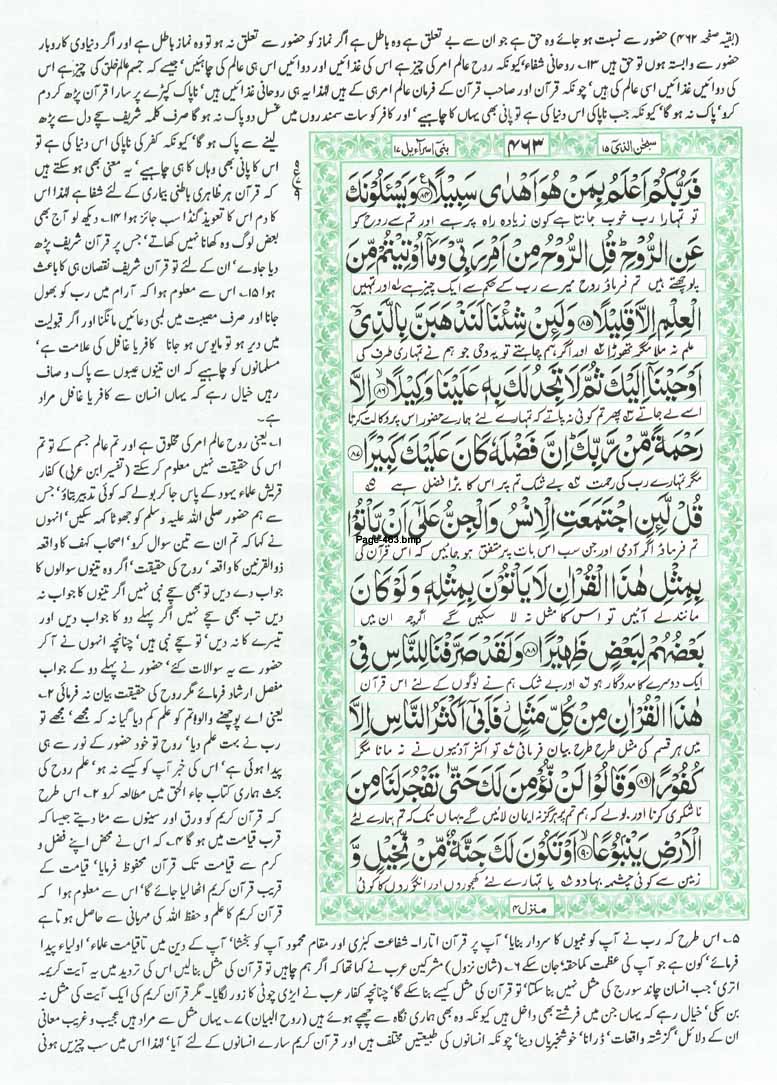 (بقیہ صفحہ ۴۶۲) حضور سے نسبت ہو جائے وہ حق ہے جو ان سے بے تعلق ہے وہ باطل ہے اگر نماز کو حضور سے تعلق نہ ہو تو وہ نماز باطل ہے اور اگر دنیاوی کاروبار
حضور سے وابستہ ہوں تو حق ہیں ۱۳۔ روحانی شفاء‘ کیونکہ روح عالم امر کی چیز ہے اس کی غذائیں اور دوائیں اس ہی عالم کی چاہئیں‘ جیسے کہ جسم عالم خلق کی چیز ہے اس
کی دوائیں غذائیں اسی عالم کی ہیں‘ چونکہ قرآن اور صاحب قرآن کے فرمان عالم امر ہی کے ہیں لہٰذا یہ ہی روحانی غذائیں ہیں‘ ناپاک کپڑے پر سارا قرآن پڑھ کر دم
کرو‘ پاک نہ ہو گا‘ کیونکہ جب ناپاکی اس دنیا کی ہے تو پانی بھی یہاں کا چاہیے‘ اور کافر کو سات سمندروں میں غسل دو پاک نہ ہو گا صرف کلمہ شریف سچے دل سے پڑھ
لینے سے پاک ہو گا‘ کیونکہ کفر کی ناپاکی اس دنیا کی ہے تو
اس کا پانی بھی وہاں کا ہی چاہیے‘ یہ معنی بھی ہو سکتے ہیں
کہ قرآن ہر ظاہری باطنی بیماری کے لئے شفا ہے لہٰذا اس
کا دم اس کا تعویذ گنڈا سب جائز ہوا ۱۴۔ دیکھ لو آج بھی
بعض لوگ وہ کھانا نہیں کھاتے‘ جس پر قرآن شریف پڑھ
دیا جاوے‘ ان کے لئے تو قرآن شریف نقصان ہی کا باعث
ہوا ۱۵۔ اس سے معلوم ہوا کہ آرام میں رب کو بھول
جانا اور صرف مصیبت میں لمبی دعائیں مانگنا اور اگر قبولیت
میں دیر ہو تو مایوس ہو جانا کافر یا غافل کی علامت ہے‘
مسلمانوں کو چاہیے کہ ان تینوں عیبوں سے پاک و صاف
رہیں خیال رہے کہ یہاں انسان سے کافر یا غافل مراد
ہے۔
۱۔ یعنی روح عالم امر کی مخلوق ہے اور تم عالم جسم کے تو تم
اس کی حقیقت نہیں معلوم کر سکتے (تفسیر ابن عربی) کفار
قریش علماء یہود کے پاس جا کر بولے کہ کوئی تدبیر بتاؤ‘ جس
سے ہم حضور صلی اللہ علیہ وسلم کو جھوٹا کہہ سکیں‘ انہوں
نے کہا کہ تم ان سے تین سوال کرو‘ اصحاب کہف کا واقعہ
ذوالقرنین کا واقعہ‘ روح کی حقیقت‘ اگر وہ تینوں سوالوں کا
جواب دے دیں تو بھی سچے نبی نہیں اگر تینوں کا جواب نہ
دیں تب بھی سچے نہیں اگر پہلے دو کا جواب دیں اور
تیسرے کا نہ دیں‘ تو سچے نبی ہیں‘ چنانچہ انہوں نے آ کر
حضور سے یہ سوالات کئے‘ حضور نے پہلے دو کے جواب
مفصل ارشاد فرمائے مگر روح کی حقیقت بیان نہ فرمائی ۲۔
یعنی اے پوچھنے والو! تم کو علم کم دیا گیا نہ کہ مجھے‘ مجھے تو
رب نے بہت علم دیا‘ روح تو خود حضور کے نور سے ہی
پیدا ہوئی ہے‘ اس کی خبر آپ کو کیسے نہ ہو‘ علم روح کی
بحث ہماری کتاب جاء الحق میں مطالعہ کرو ۳۔ اس طرح
کہ قرآن کریم کو ورق اور سینوں سے مٹا دیتے جیسا کہ
قرب قیامت میں ہو گا ۴۔ کہ اس نے محض اپنے فضل و
کرم سے قیامت تک قرآن محفوظ فرمایا‘ قیامت کے
قریب قرآن کریم اٹھا لیا جائے گا‘ اس سے معلوم ہوا کہ
قرآن کریم کا علم و حفظ اللہ کی مہربانی سے حاصل ہوتا ہے
سبحٰن الذی ۱۵ ۴۶۳ بنی اسرآءیل ۱۷
فَرَبُّكُمْ اَعْلَمُ بِمَنْ هُوَ اَهْدٰى سَبِيْلًا ﴿۸۴﴾ وَيَسْـَٔلُوْنَكَ
تو تمہارا رب خوب جانتا ہے کون زیادہ راہ پر ہے اور تم سے روح کو
عَنِ الرُّوْحِ ؕ قُلِ الرُّوْحُ مِنْ اَمْرِ رَبِّيْ وَمَاۤ اُوْتِيْتُمْ مِّنَ
پوچھتے ہیں تم فرماؤ روح میرے رب کے حکم سے ایک چیز ہے ۱ اور تمہیں
الْعِلْمِ اِلَّا قَلِيْلًا ﴿۸۵﴾ وَلَئِنْ شِئْنَا لَنَذْهَبَنَّ بِالَّذِيْۤ
علم نہ ملا مگر تھوڑا ۲ اور اگر ہم چاہتے تو یہ وحی جو ہم نے تمہاری طرف کی
اَوْحَيْنَاۤ اِلَيْكَ ثُمَّ لَا تَجِدُ لَكَ بِهٖ عَلَيْنَا وَكِيْلًا ﴿۸۶﴾ اِلَّا
اسے لے جاتے ۳ پھر تم کوئی نہ پاتے کہ تمہارے لئے ہمارے حضور اس پر وکالت کرتا
رَحْمَةً مِّنْ رَّبِّكَ ؕ اِنَّ فَضْلَهٗ كَانَ عَلَيْكَ كَبِيْرًا ﴿۸۷﴾
مگر تمہارے رب کی رحمت ۴ بے شک تم پر اس کا بڑا فضل ہے ۵
قُلْ لَّئِنِ اجْتَمَعَتِ الْاِنْسُ وَالْجِنُّ عَلٰۤى اَنْ يَّاْتُوْا
تم فرماؤ اگر آدمی اور جن سب اس بات پر متفق ہو جائیں کہ اس قرآن کی
Page-463.bmp
بِمِثْلِ هٰذَا الْقُرْاٰنِ لَا يَاْتُوْنَ بِمِثْلِهٖ وَلَوْ كَانَ
مانند لے آئیں تو اس کا مثل نہ لا سکیں گے اگرچہ ان میں
بَعْضُهُمْ لِبَعْضٍ ظَهِيْرًا ﴿۸۸﴾ وَلَقَدْ صَرَّفْنَا لِلنَّاسِ فِيْ
ایک دوسرے کا مددگار ہو ۶ اور بے شک ہم نے لوگوں کے لئے اس قرآن
هٰذَا الْقُرْاٰنِ مِنْ كُلِّ مَثَلٍ ؗ فَاَبٰۤى اَكْثَرُ النَّاسِ اِلَّا
میں ہر قسم کی مثل طرح طرح بیان فرمائی ۷ تو اکثر آدمیوں نے نہ مانا مگر
كُفُوْرًا ﴿۸۹﴾ وَقَالُوْا لَنْ نُّؤْمِنَ لَكَ حَتّٰى تَفْجُرَ لَنَا مِنَ
ناشکری کرنا اور بولے کہ ہم تم پر ہرگز نہ ایمان لائیں گے یہاں تک کہ تم ہمارے لئے
الْاَرْضِ يَنْۢبُوْعًا ﴿۹۰﴾ اَوْ تَكُوْنَ لَكَ جَنَّةٌ مِّنْ نَّخِيْلٍ وَّ
زمین سے کوئی چشمہ بہا دو ۸ یا تمہارے لئے کھجوروں اور انگوروں کا کوئی
منزل ۴
۵۔ اس طرح کہ رب نے آپ کو نبیوں کا سردار بنایا‘ آپ پر قرآن اتارا۔ شفاعت کبریٰ اور مقام محمود آپ کو بخشا‘ آپ کے دین میں تاقیامت علماء‘ اولیاء پیدا
فرمائے‘ کون ہے جو آپ کی عظمت کماحقہ‘ جان سکے ۶۔ (شان نزول) مشرکین عرب نے کہا تھا کہ اگر ہم چاہیں تو قرآن کی مثل بنالیں اس کی تردید میں یہ آیت کریمہ
اتری‘ جب انسان چاند سورج کی مثل نہیں بنا سکتا‘ تو قرآن کی مثل کیسے بنا سکے گا‘ چنانچہ کفار عرب نے ایڑی چوٹی کا زور لگایا۔ مگر قرآن کریم کی ایک آیت کی مثل نہ
بن سکی‘ خیال رہے کہ یہاں جن میں فرشتے بھی داخل ہیں کیونکہ وہ بھی ہماری نگاہ سے چھپے ہوئے ہیں (روح البیان) ۷۔ یہاں مثل سے مراد ہیں عجیب و غریب معانی
ان کے دلائل‘ گزشتہ واقعات‘ ڈرانا‘ خوشخبریاں دینا‘ چونکہ انسانوں کی طبیعتیں مختلف ہیں اور قرآن کریم سارے انسانوں کے لئے آیا‘ لہٰذا اس میں سب چیزیں ہونی